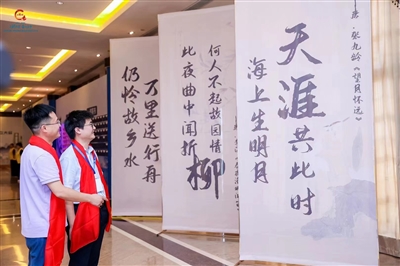 仍怜故乡水
万里送行舟
此夜曲中闻折柳
何人不起故园情
海上生明月
天涯共此时
唐·张九龄《望月怀远》